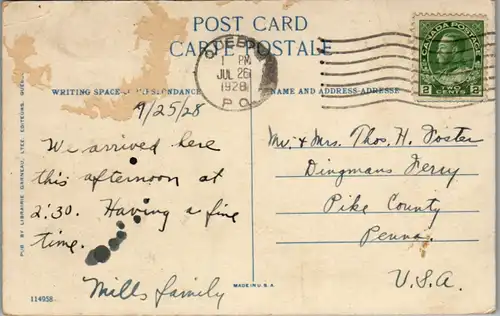 POST CARD
CARTE POSTALE
QUEBEC
1 PM
JUL 26
1928
P.Q.
CANADA POSTAGE
2 CENTS 2
WRITING SPACE
NAME AND ADDRESS-ADRESSE
9/25/28
We arrived here
this afternoon at
2:30. Having a fine
time.
Mills family
Mr. & Mrs. Thos. H. Foster
Dingmans Ferry
Pike County
Penna.
U.S.A.
PUB BY LIBRAIRIE GARNEAU, LTEE. EDITEURS, QUEBEC
114958
MADE IN U.S.A.